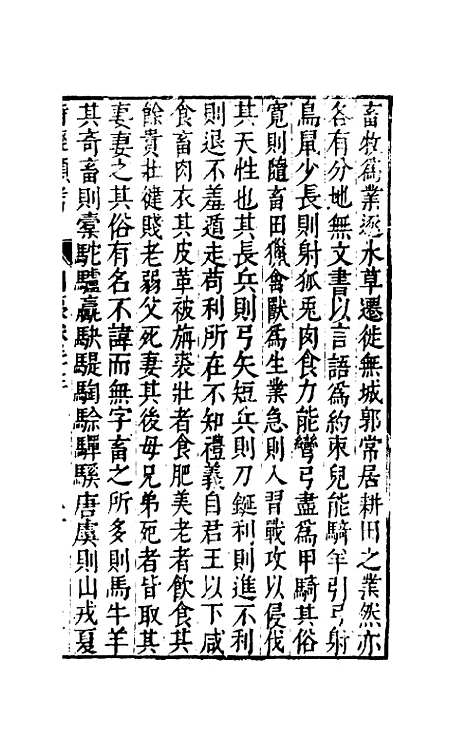 畜牧爲業逐水草遷徙無城郭常居耕田之業然亦
各有分地無文書以言語爲約束兒能騎羊引弓射
鳥鼠少長則射狐兎肉食力能彎弓盡爲甲騎其俗
寛則隨畜田獵禽獸爲生業急則人習戰攻以侵伐
其天性也其長兵則弓矢短兵則刀鋋利則進不利
則退不羞遁走苟利所在不知禮義自君王以下咸
食畜肉衣其皮革被旃裘壯者食肥美老者飲食其
餘貴壯健賤老弱父死妻其後母兄弟死者皆取其
妻妻之其俗有名不諱而無字畜之所多則馬牛羊
其奇畜則橐駝驢驘駃騠騊駼驒騱唐虞則山戎夏